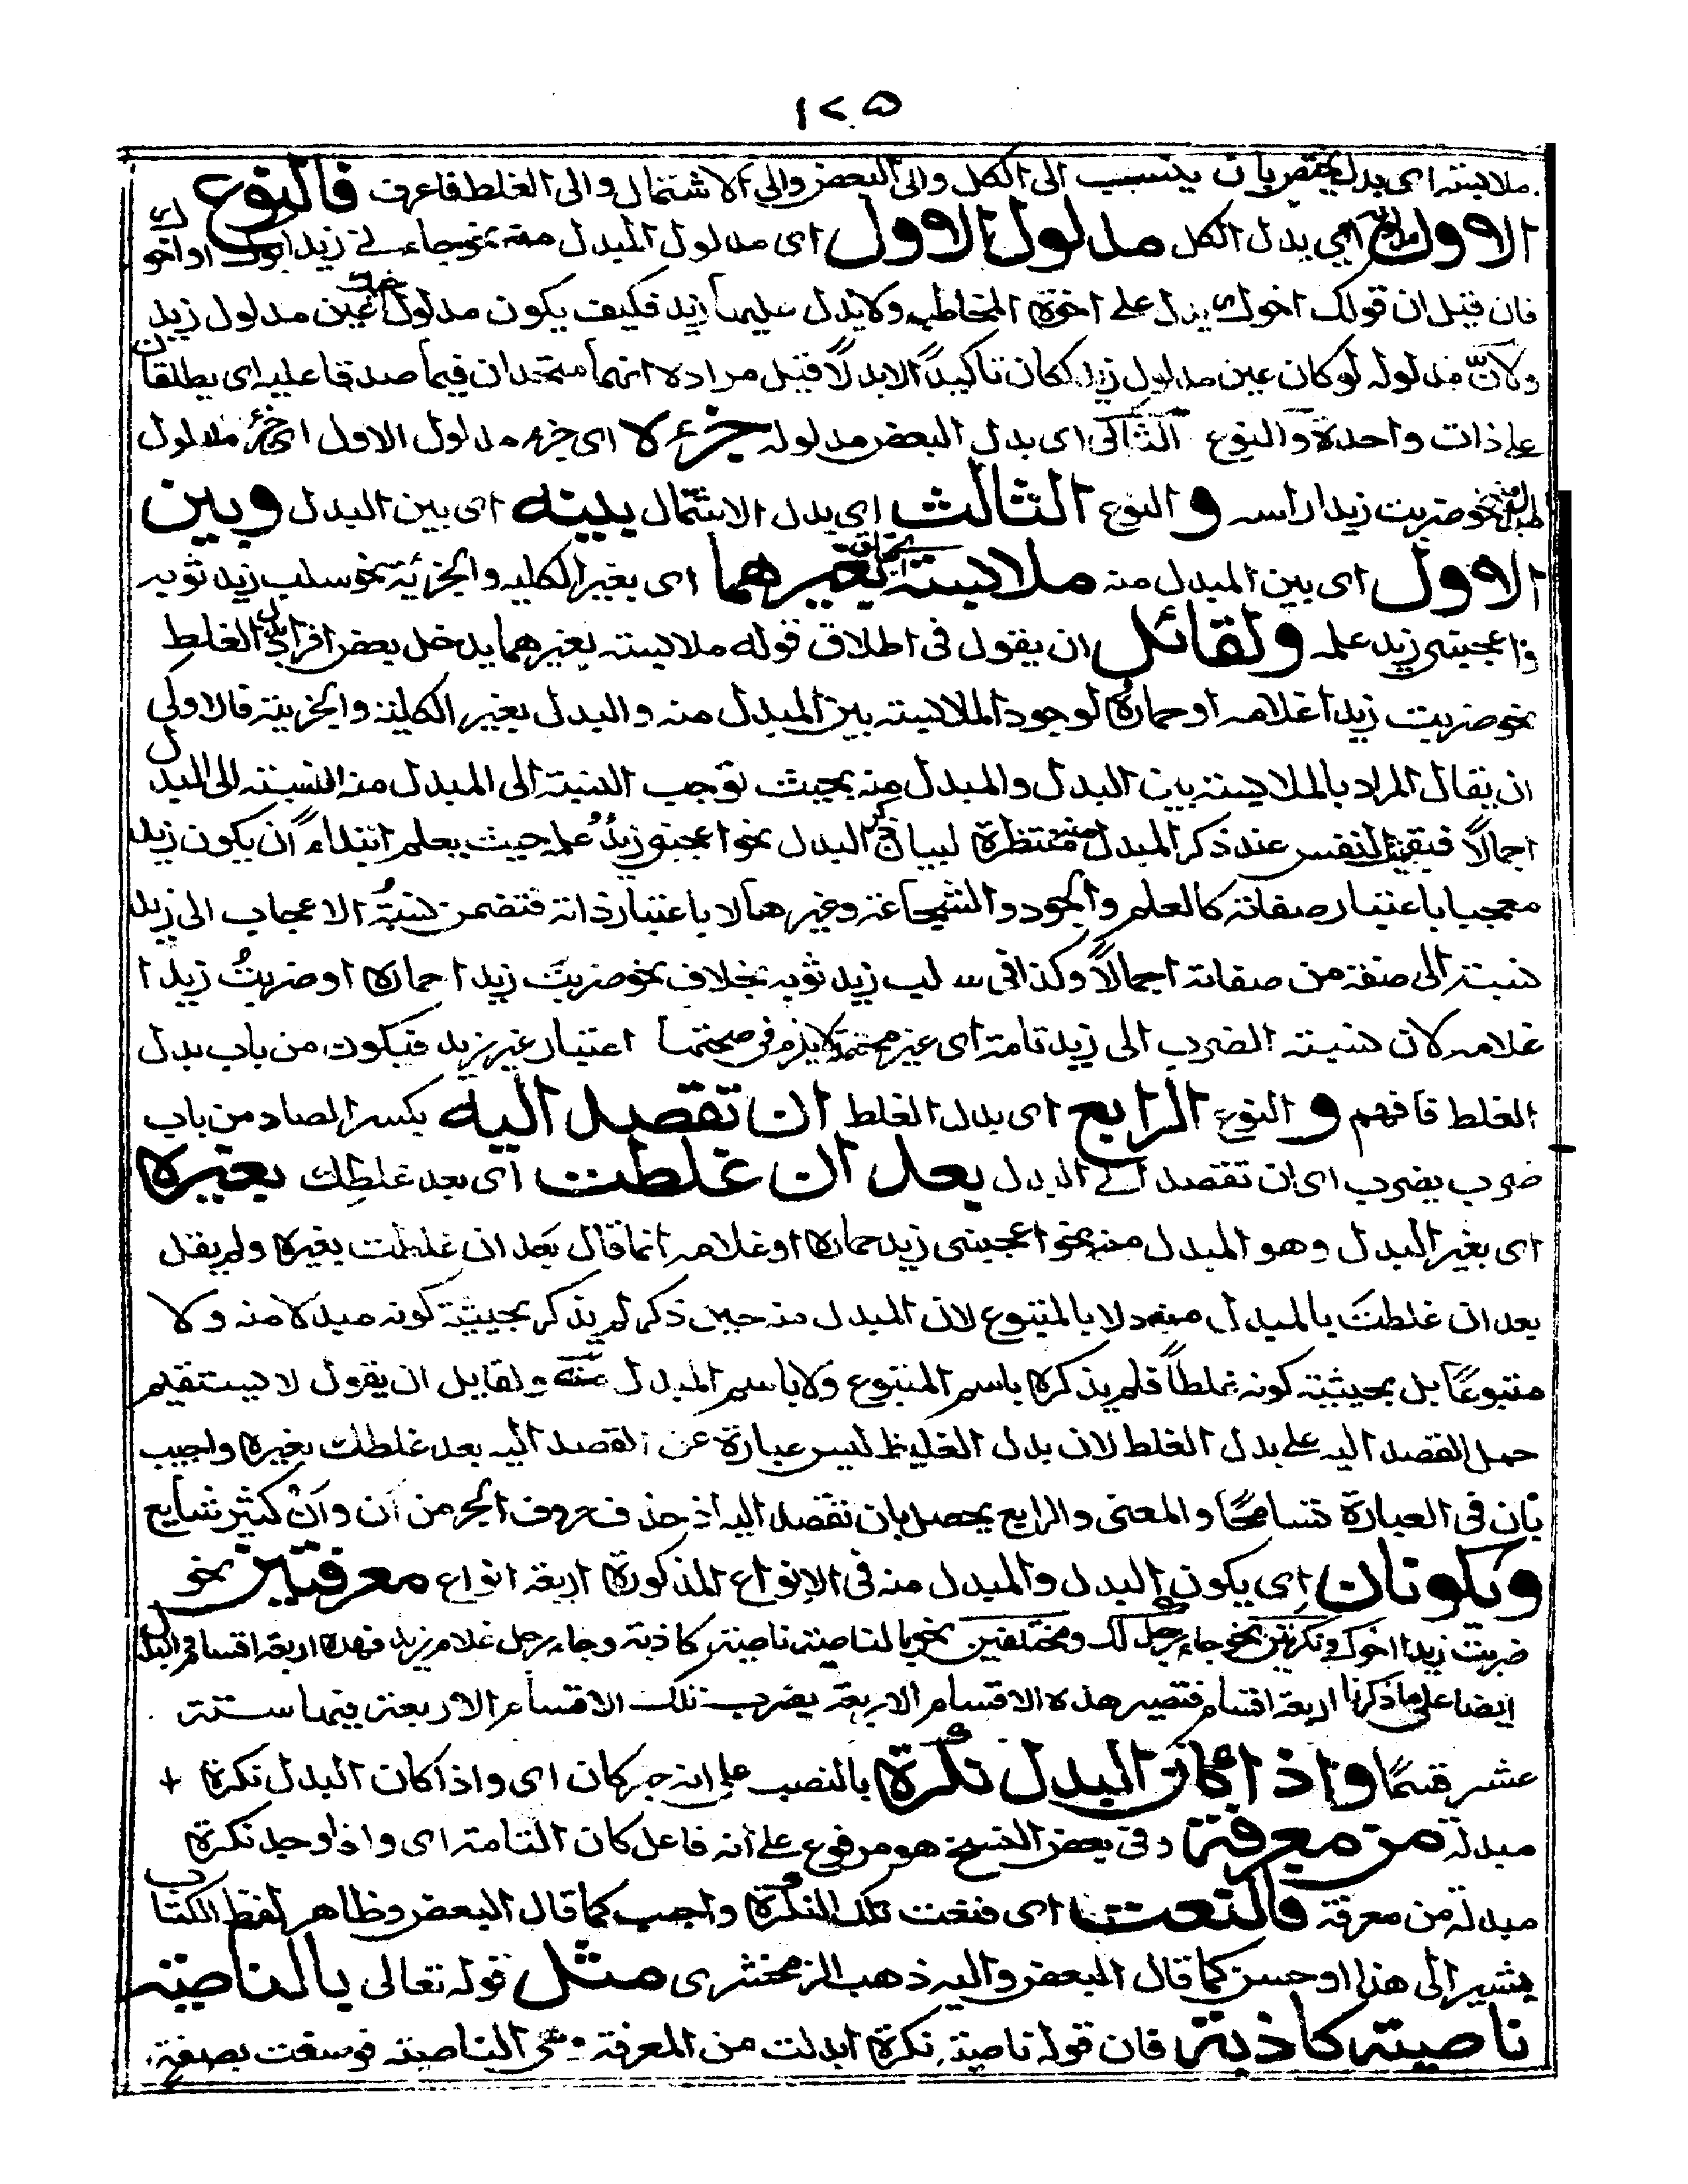 ١٢٥
ملابسته اى بدل يختص بان ينسب الى الكل والى البعض والى الاشتمال والى الغلط فاعرف فالنوع
الاول اى بدل الكل مدلول الاول اى مدلول المبدل منه نحو جاءنى زيد ابوك او اخوك
فان قيل ان قولك اخوك يدل على اخوة المخاطب ولا يدل عليها زيد فكيف يكون مدلول اخوك عين مدلول زيد
ولان مدلوله لو كان عين مدلول زيد لكان تاكيداً لا بدلاً قيل مراده انهما متحدان فيما صدقا عليه اى يطلقان
على ذات واحدة والنوع الثانى اى بدل البعض مدلوله جزءه اى جزء مدلول الاول اى جزء مدلول
المبدل منه نحو ضربت زيدا راسه والنوع الثالث اى بدل الاشتمال بينه اى بين البدل وبين
الاول اى بين المبدل منه ملابسة بغيرهما اى بغير الكلية والجزئية نحو سلب زيد ثوبه
واعجبنى زيد علمه ولقائل ان يقول فى اطلاق قوله ملابسته بغيرهما يدخل بعض افراد بدل الغلط
نحو ضربت زيدا غلامه او حماره لوجود الملابسته بين المبدل منه والبدل بغير الكلية والجزئية فالاولى
ان يقال المراد بالملابسته بين البدل والمبدل منه بحيث توجب النسبة الى المبدل منه النسبته الى المبدل
اجمالاً فتبقى النفس عند ذكر المبدل منه منتظرة لبيان ذكر البدل نحو اعجبنى زيدٌ علمه حيث يعلم ابتداءً ان يكون زيد
معجبا باعتبار صفاته كالعلم والجود والشجاعة وغيرها لا باعتبار ذاته فتضمن نسبةُ الاعجاب الى زيد
نسبته الى صفة من صفاته اجمالاً وكذا فى سلب زيد ثوبه بخلاف نحو ضربت زيدا حماره او ضربتُ زيدا
غلامه لان نسبته الضرب الى زيد تامة اى غير محتملة لا يلزم فى صحتها اعتبار غير زيد فيكون من باب بدل
الغلط فافهم والنوع الرابع اى بدل الغلط ان تقصد اليه بكسر الصاد من باب
ضرب يضرب اى ان تقصد الى البدل بعد ان غلطت اى بعد غلطك بغيره
اى بغير البدل وهو المبدل منه نحو اعجبنى زيد حماره او غلامه انما قال بعد ان غلطت بغيره ولم يقل
بعد ان غلطتَ بالمبدل منه ولا بالمتبوع لان المبدل منه حين ذكر لم يذكر بحيثية كونه مبدلا منه ولا
متبوعاً بل بحيثية كونه غلطاً فلم يذكره باسم المتبوع ولا باسم المبدل منه ولقايل ان يقول لا يستقيم
حمل القصد اليه على بدل الغلط لان بدل الغلط ليس عبارة عن القصد اليه بعد غلطك بغيره واجيب
بان فى العبارة تسامحًا والمعنى والرابع يحصل بان تقصد اليه اذ حذف حروف الجر من اَن واَنّ كثير شايع
ويكونان اى يكون البدل والمبدل منه فى الانواع المذكورة اربعة انواع معرفتين نحو
ضربت زيدا اخوك ونكرتين نحو جاء رجل لك ومختلفين نحو بالناصية ناصية كاذبة وجاء رجل غلام زيد فهذه اربعة اقسام فى البدل
ايضا على ما ذكرنا اربعة اقسام فتصير هذه الاقسام الاربعة يضرب تلك الاقسام الاربعة فيها ستة
عشر قسمًا واذا كان البدل نكرة بالنصب على انه خبر كان اى واذا كان البدل نكرة
مبدلة من معرفة وفى بعض النسخ هو مرفوع على انه فاعل كان التامة اى واذا وجد نكرة
مبدلة من معرفة فالنعت اى فنعت تلك النكرة واجب كما قال البعض وظاهر لفظ الكتاب
يشير الى هذا او حسن كما قال البعض واليه ذهب الزمخشرى مثل قوله تعالى بالناصية
ناصية كاذبة فان قوله ناصية نكرة ابدلت من المعرفة وهى الناصيته فوسفت بصفة